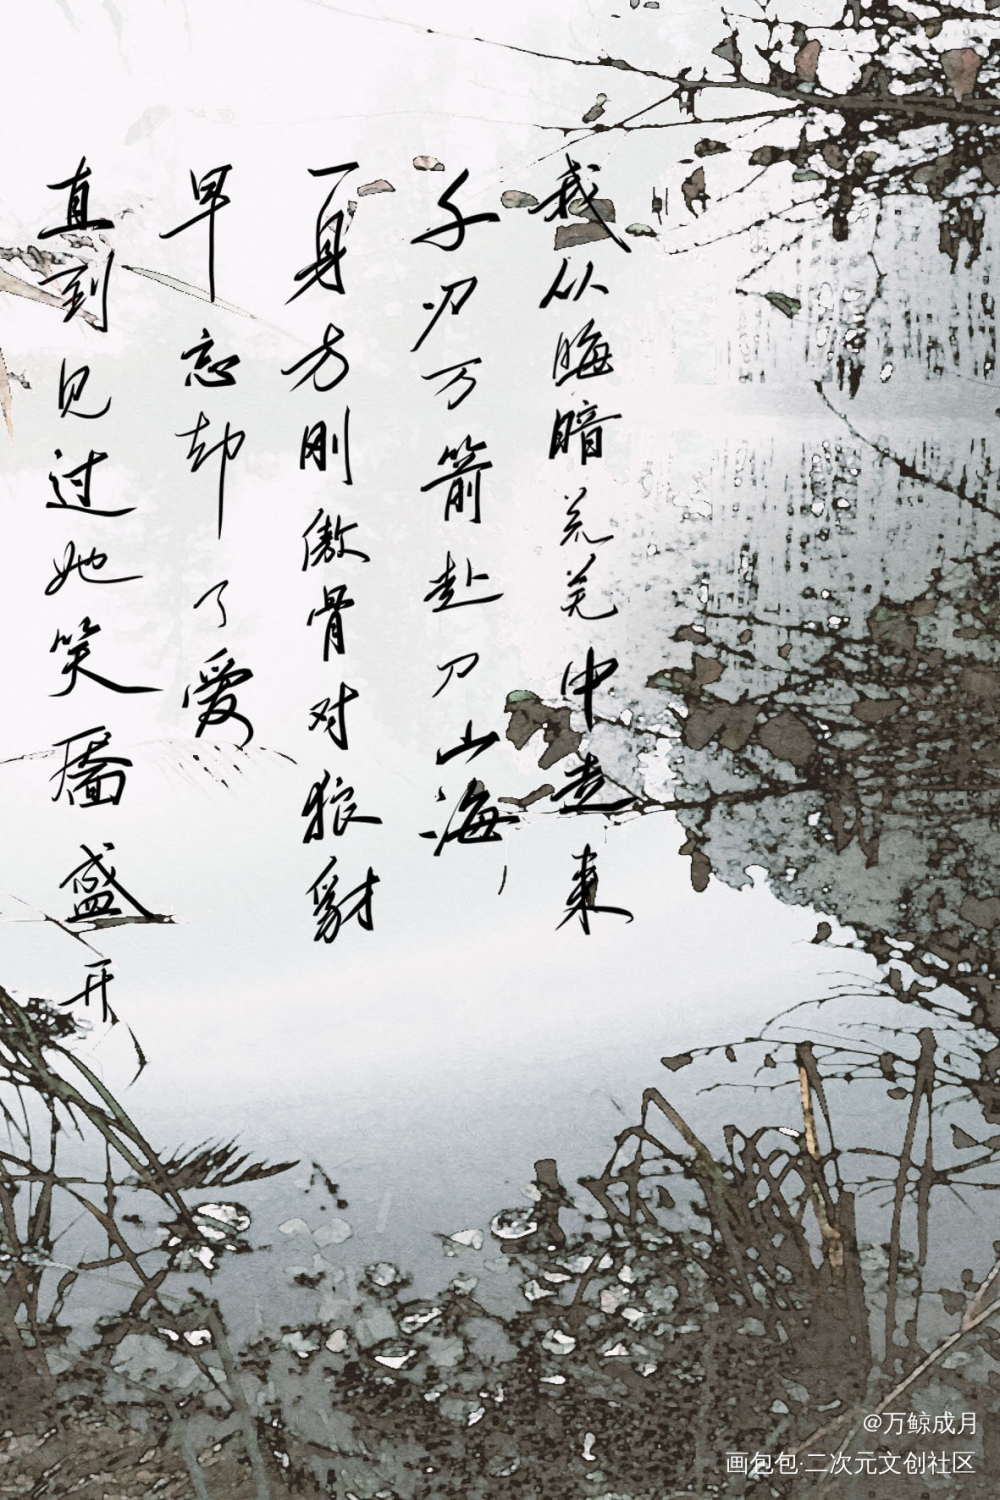 我从晦暗荒芜中走来
千刃万箭赴刀山海
一身方刚傲骨对狼豺
早忘却了爱
直到见过她笑靥盛开
@万鲸成月
画包包·二次元文创社区